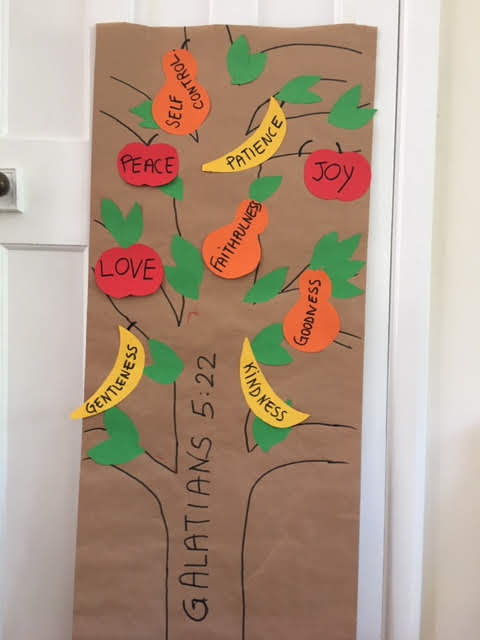 SELF
CONTROL
PATIENCE
PEACE
JOY
FAITHFULNESS
LOVE
GOODNESS
GENTLENESS
KINDNESS
GALATIANS 5:22